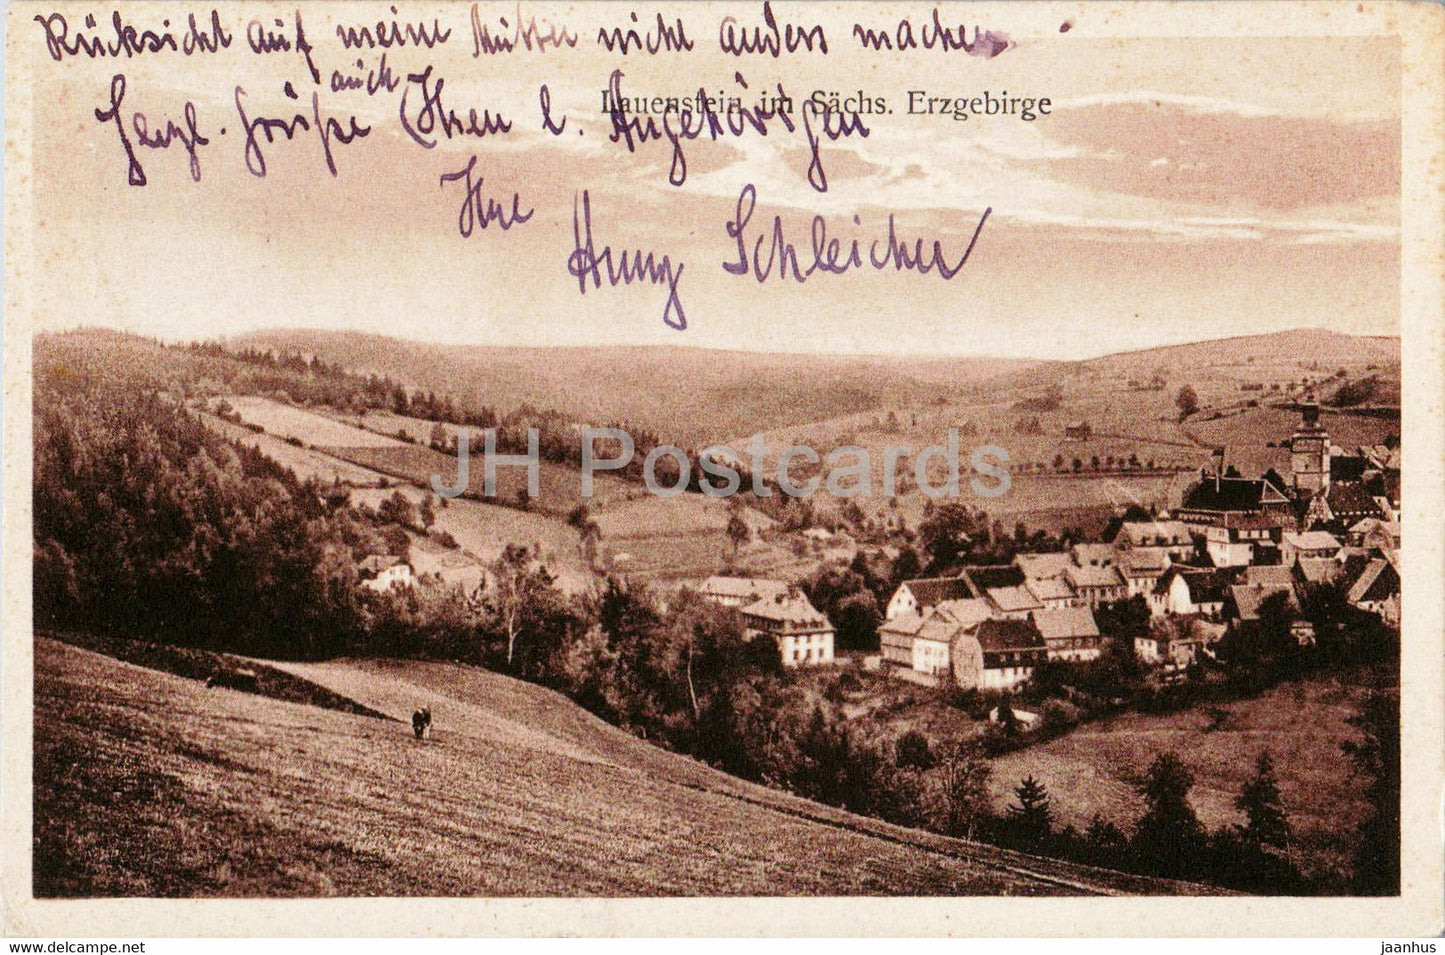 Rücksicht auf meine Mutter nicht anders machen.
Lauenstein im Sächs. Erzgebirge
Herzl. Grüße auch Ihren l. Angehörigen
Ihre
Schleicher
JH Postcards
www.delcampe.net
jaanhus